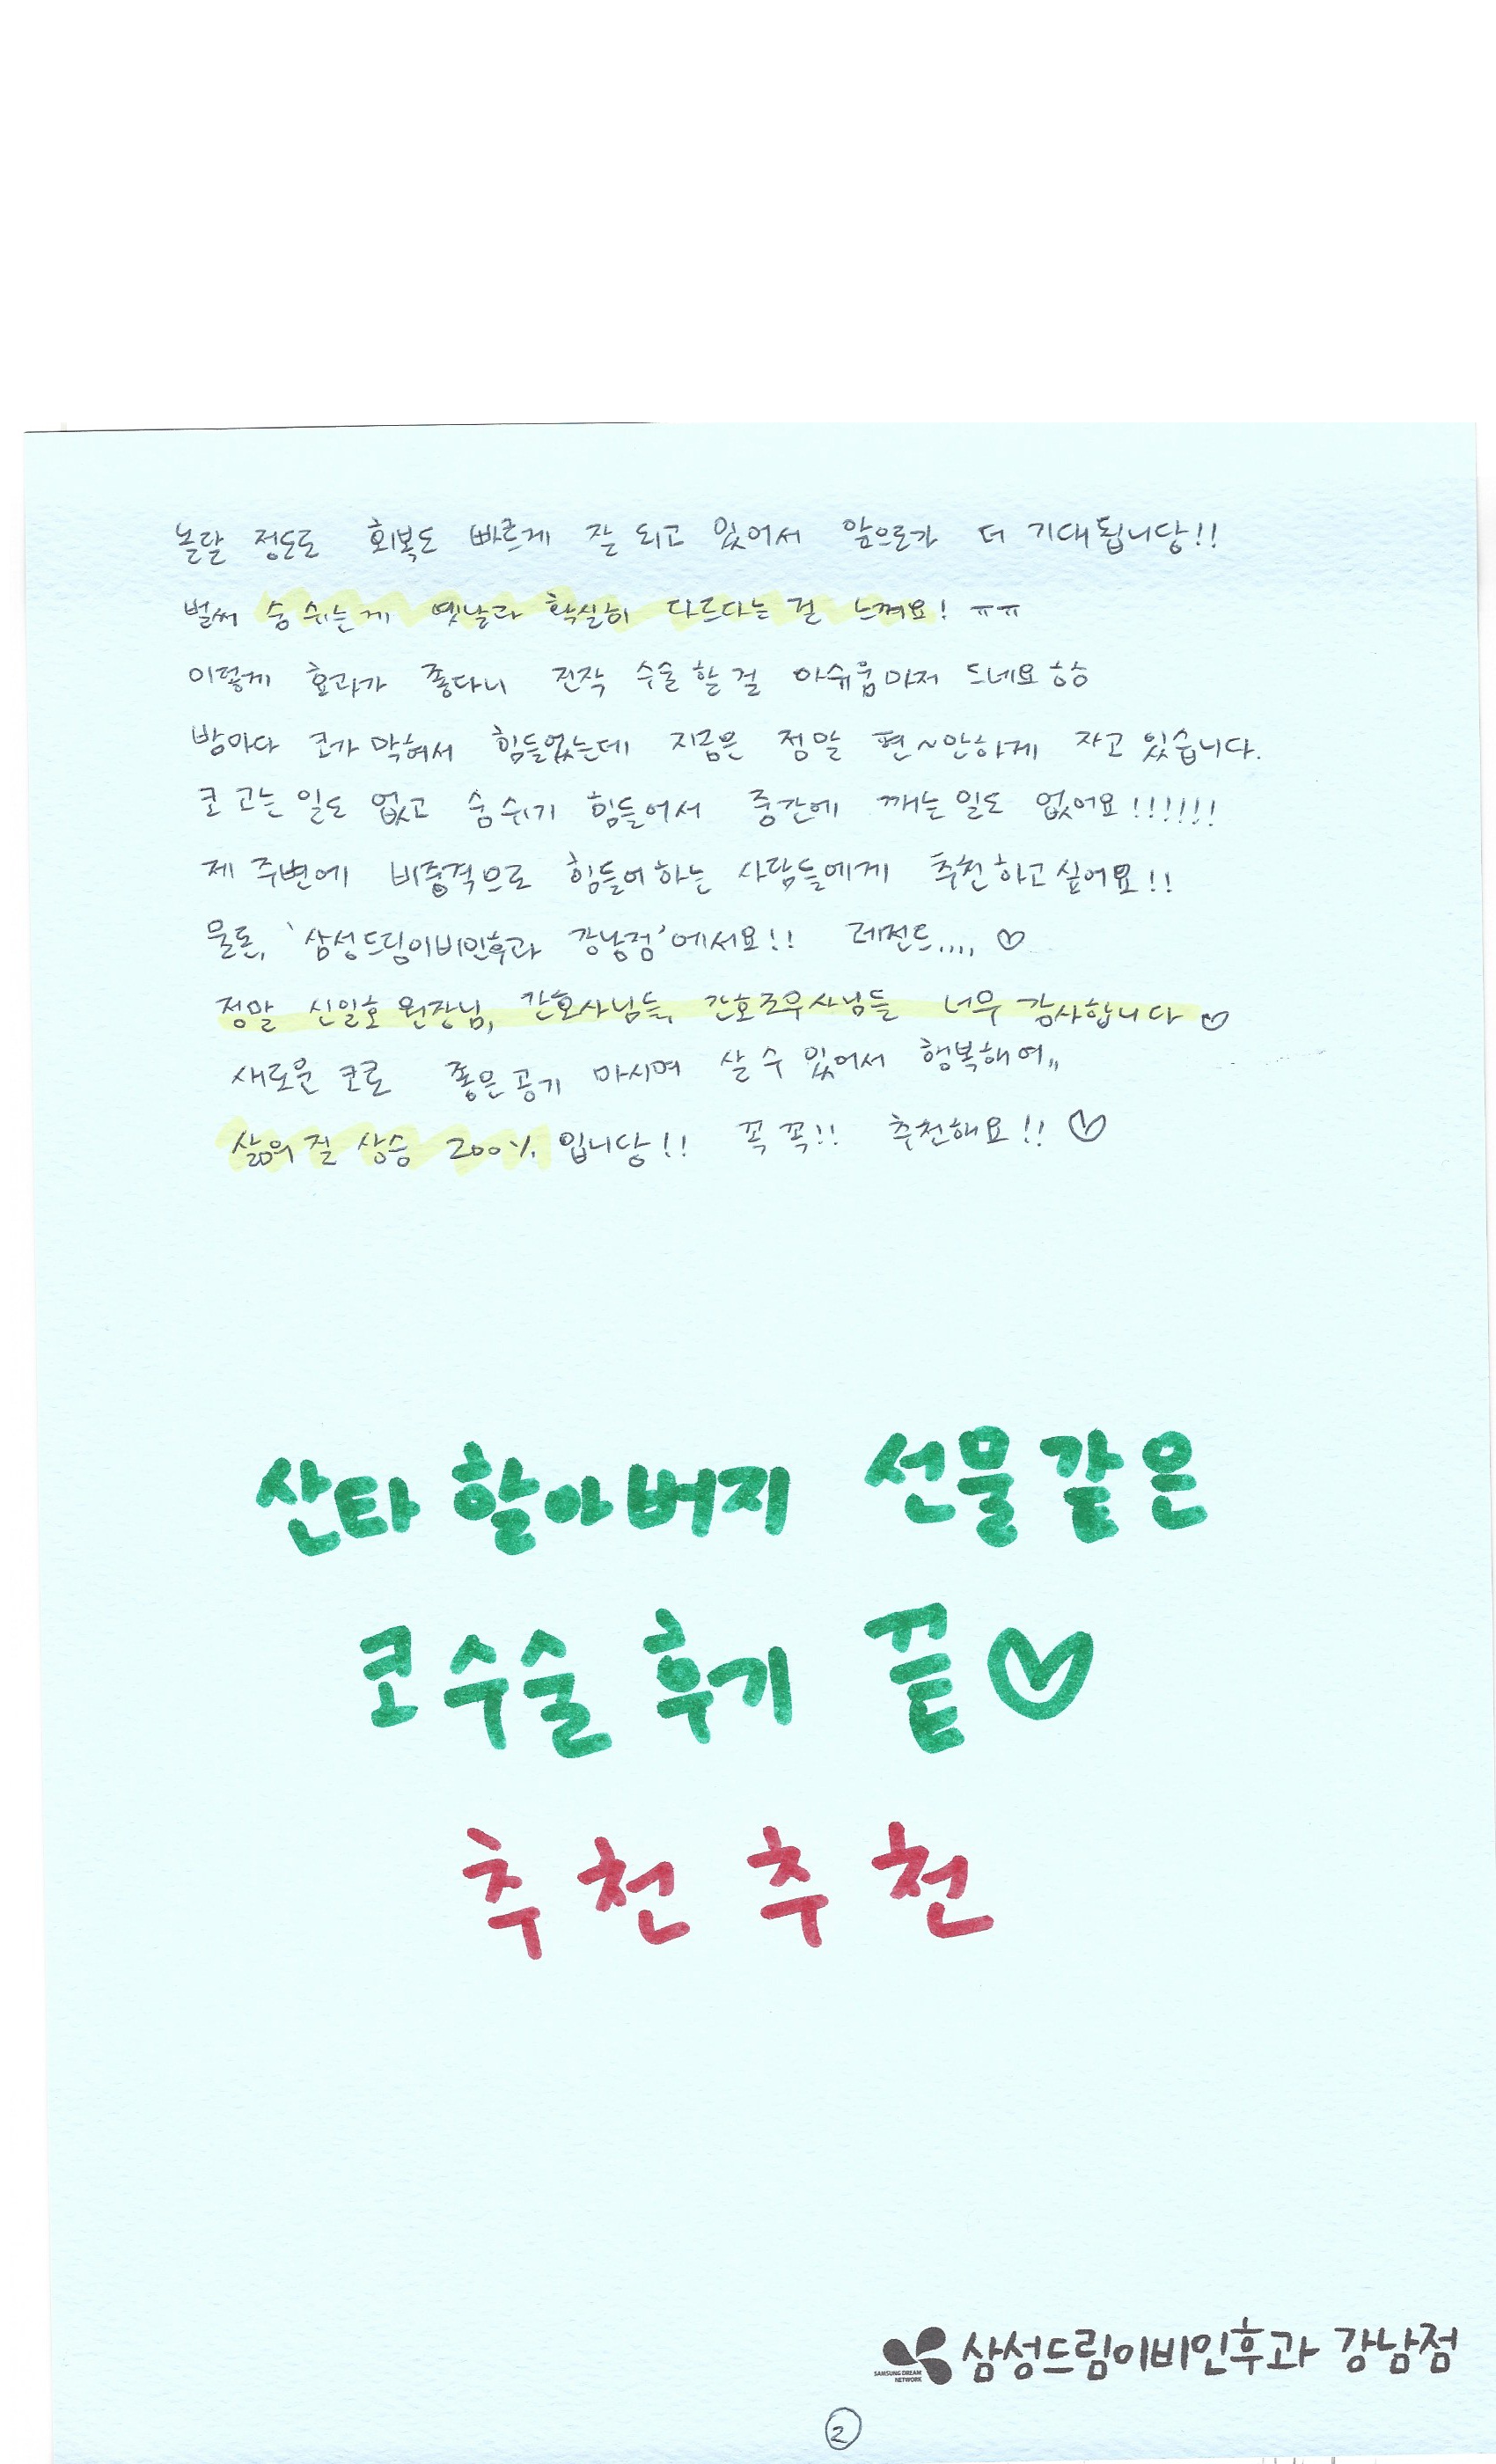 놀랄 정도로 회복도 빠르게 잘 되고 있어서 앞으로가 더 기대됩니당!!
벌써 숨 쉬는게 옛날과 확실히 다르다는 걸 느껴요! ㅠㅠ
이렇게 효과가 좋다니 진작 수술할 걸 아쉬움마저 드네요ㅎㅎ
밤마다 코가 막혀서 힘들었는데 지금은 정말 편~안하게 자고 있습니다.
코 고는 일도 없고 숨 쉬기 힘들어서 중간에 깨는 일도 없어요!!!!!!
제 주변에 비중격으로 힘들어하는 사람들에게 추천하고 싶어요!!
물론, '삼성드림이비인후과 강남점'에서요!! 레전드.... ♡
정말 신일호 원장님, 간호사님들, 간호조무사님들 너무 감사합니다 ♡
새로운 코로 좋은 공기 마시며 살 수 있어서 행복해여,,
삶의 질 상승 200% 입니당!! 꼭 꼭!! 추천해요!! ♡
산타 할아버지 선물같은
코수술 후기 끝♡
추천추천
SAMSUNG DREAM NETWORK 삼성드림이비인후과 강남점
2